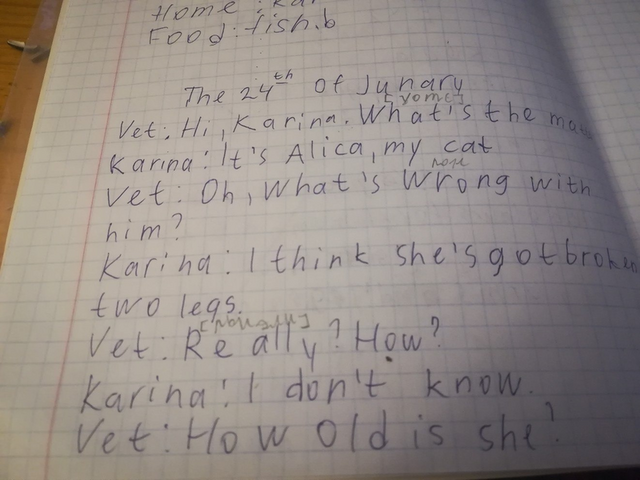 Home : Ka
Food : fish.b
The 24th of Junary
Vet: Hi, Karina. What's the ma
Karina: It's Alica, my cat
Vet: Oh, What's wrong with
him?
Karina: I think she's got broken
two legs.
Vet: Really? How?
Karina: I don't know.
Vet: How old is she?